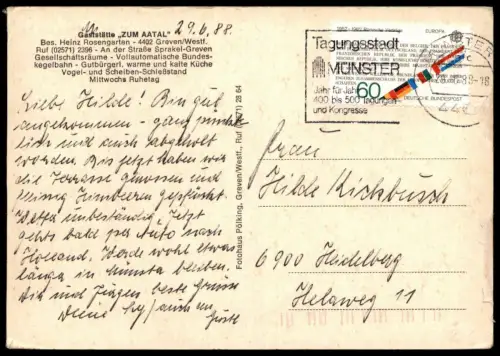 29.6.88.
Gaststätte „ZUM AATAL"
Bes. Heinz Rosengarten - 4402 Greven/Westf.
Ruf (02571) 2296 - An der Straße Sprakel-Greven
Gesellschaftsräume - Vollautomatische Bundes-
kegelbahn - Gutbürgerl. warme und kalte Küche
Vogel- und Scheiben-Schießstand
Mittwochs Ruhetag
Liebe Hilde! Bin gut
angekommen - ganz pünkt-
lich und auch abgeholt
worden. Bis jetzt haben wir
die Terrasse genossen und
fleissig Himbeeren gepflückt.
Wetter unbeständig. Jetzt
gehts bald per Auto nach
Holland. Werde wohl etwas
länger in Münster bleiben.
Dir und Jürgen beste Grüsse
Deine
Fotohaus Pölking, Greven/Westf., Ruf
Tagungsstadt
MÜNSTER
Jahr für Jahr
400 bis 500 Tagungen
und Kongresse
EUROPA
60
DEUTSCHE BUNDESPOST
Frau
Hilde Kirchbusch
6900 Heidelberg
Helaweg 11